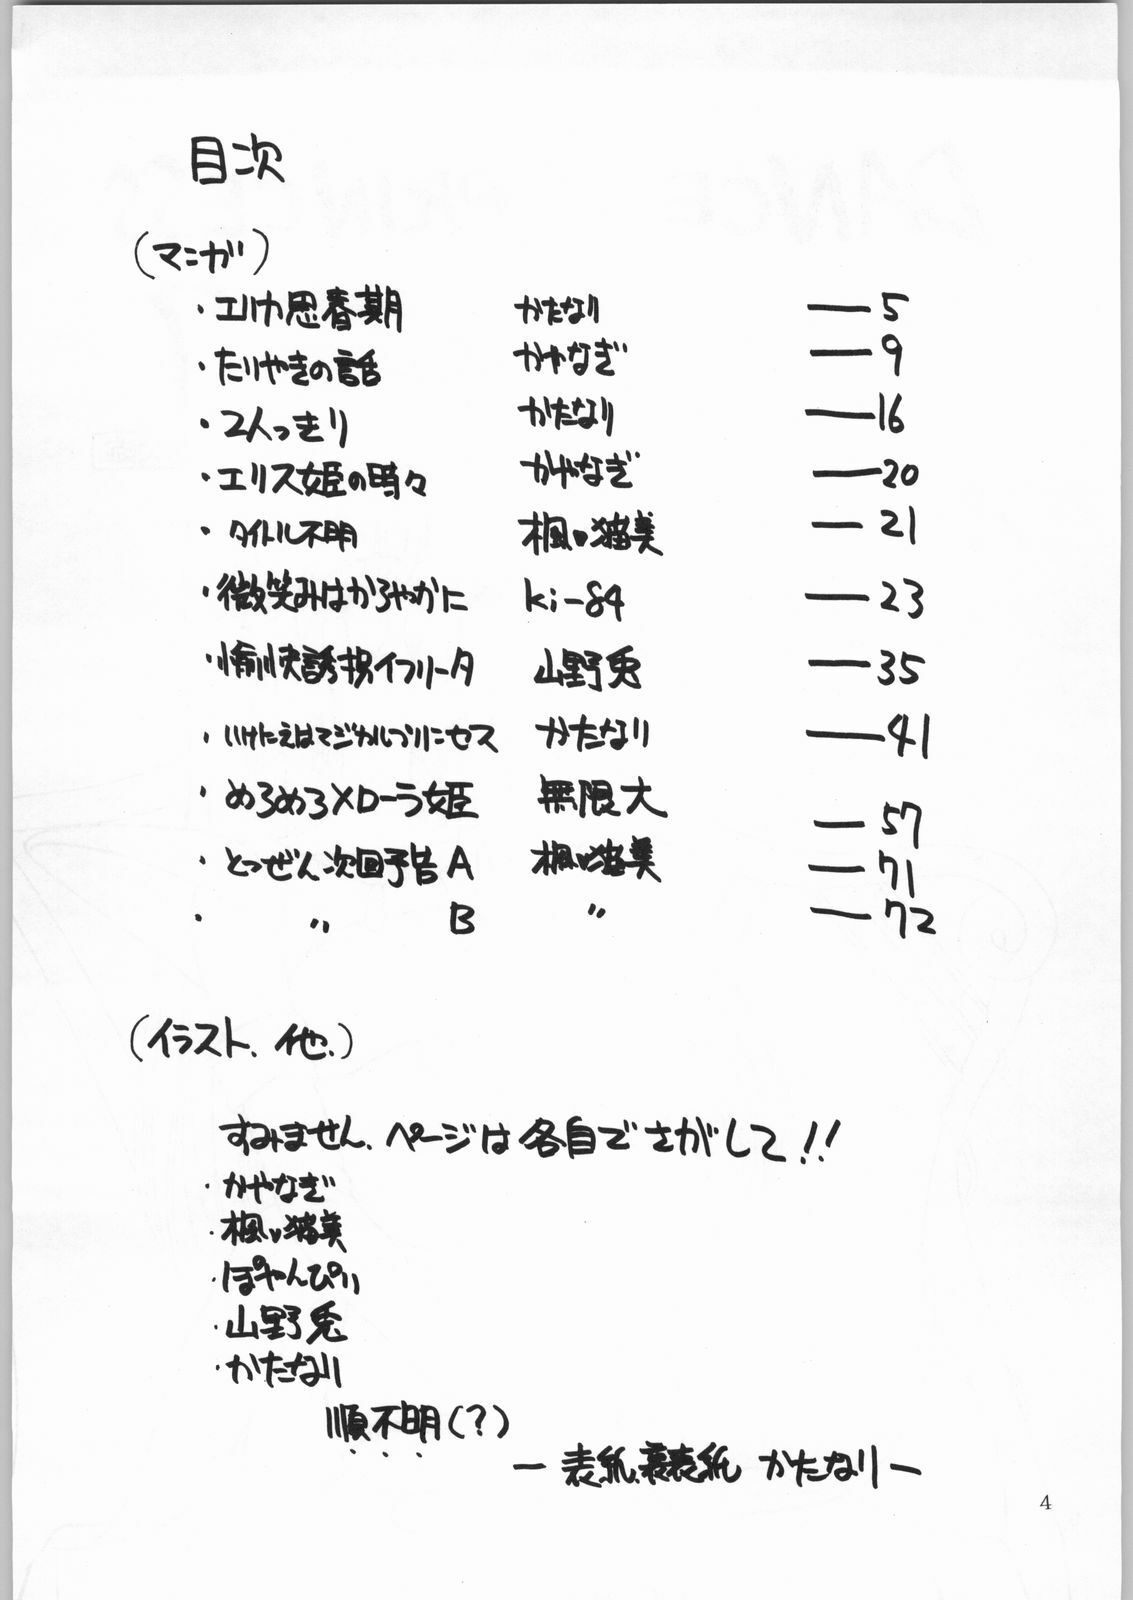 目次
(マンガ)
・エリカ思春期 かたなり ― 5
・たりやきの話 かやなぎ ― 9
・2人っきり かたなり ― 16
・エリス姫の時々 かやなぎ ― 20
・タイトル不明 楓い猫美 ― 21
・微笑みはかろやかに ki-84 ― 23
・愉快誘拐イフリータ 山野兎 ― 35
・いけにえはマジカルプリンセス かたなり ― 41
・めろめろ×ローラ姫 無限大 ― 57
・とつぜん次回予告A 楓い猫美 ― 71
・〃 B 〃 ― 72
(イラスト、他、)
すみません、ページは各自でさがして!!
・かやなぎ
・楓い猫美
・ぽやんぴぃ
・山野兎
・かたなり
順不明(?)
― 表紙、裏表紙 かたなり ―
4